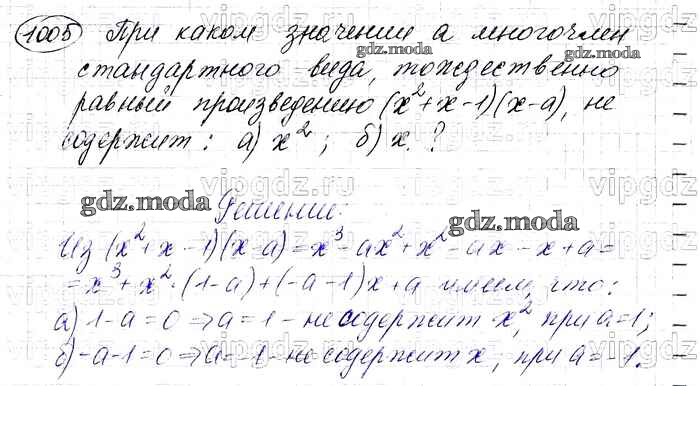 1005 При каком значении а многочлен
gdz.moda gdz.moda
стандартного вида, тождественно
равный произведению (x²+x-1)(x-a), не
содержит: а) x²; б) x.?
gdz.moda Решение: gdz.moda
Из (x²+x-1)(x-a)=x³-ax²+x²-ax-x+a=
=x³+x²·(1-a)+(-a-1)x+a имеем, что:
а) 1-a=0 ⇒ a=1 - не содержит x², при a=1;
б) -a-1=0 ⇒ a=-1 - не содержит x, при a=-1.